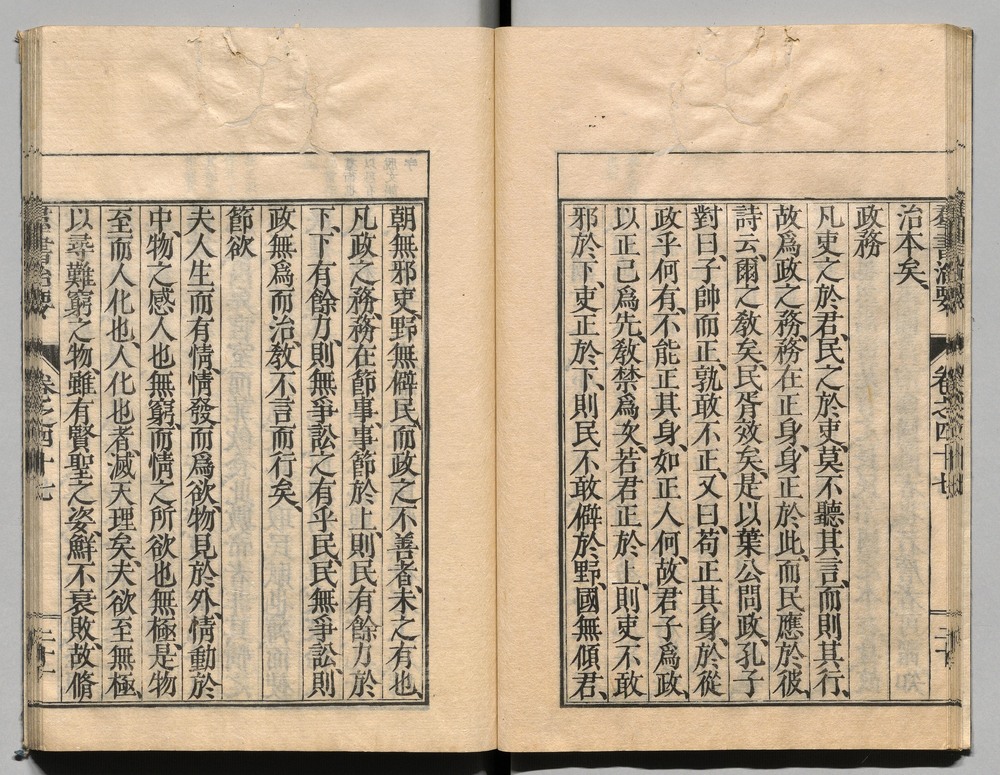 治本矣、
政務
凡吏之於君、民之於吏、莫不聽其言、而則其行、
故爲政之務、務在正身、身正於此、而民應於彼、
詩云、爾之敎矣、民胥效矣、是以葉公問政、孔子
對曰、子帥而正、孰敢不正、又曰、苟正其身、於從
政乎何有、不能正其身、如正人何、故君子爲政、
以正己爲先、敎禁爲次、若君正於上、則吏不敢
邪於下、吏正於下、則民不敢僻於野、國無傾君、
朝無邪吏、野無僻民、而政之不善者、未之有也、
凡政之務、務在節事、事節於上、則民有餘力於
下、下有餘力、則無爭訟之有乎民、民無爭訟、則
政無爲而治、敎不言而行矣、
節欲
夫人生而有情、情發而爲欲、物見於外、情動於
中、物之感人也無窮、而情之所欲也無極、是物
至而人化也、人化也者、滅天理矣、夫欲至無極、
以尋難窮之物、雖有賢聖之姿、鮮不衰敗、故脩
羣書治要 卷之四十七